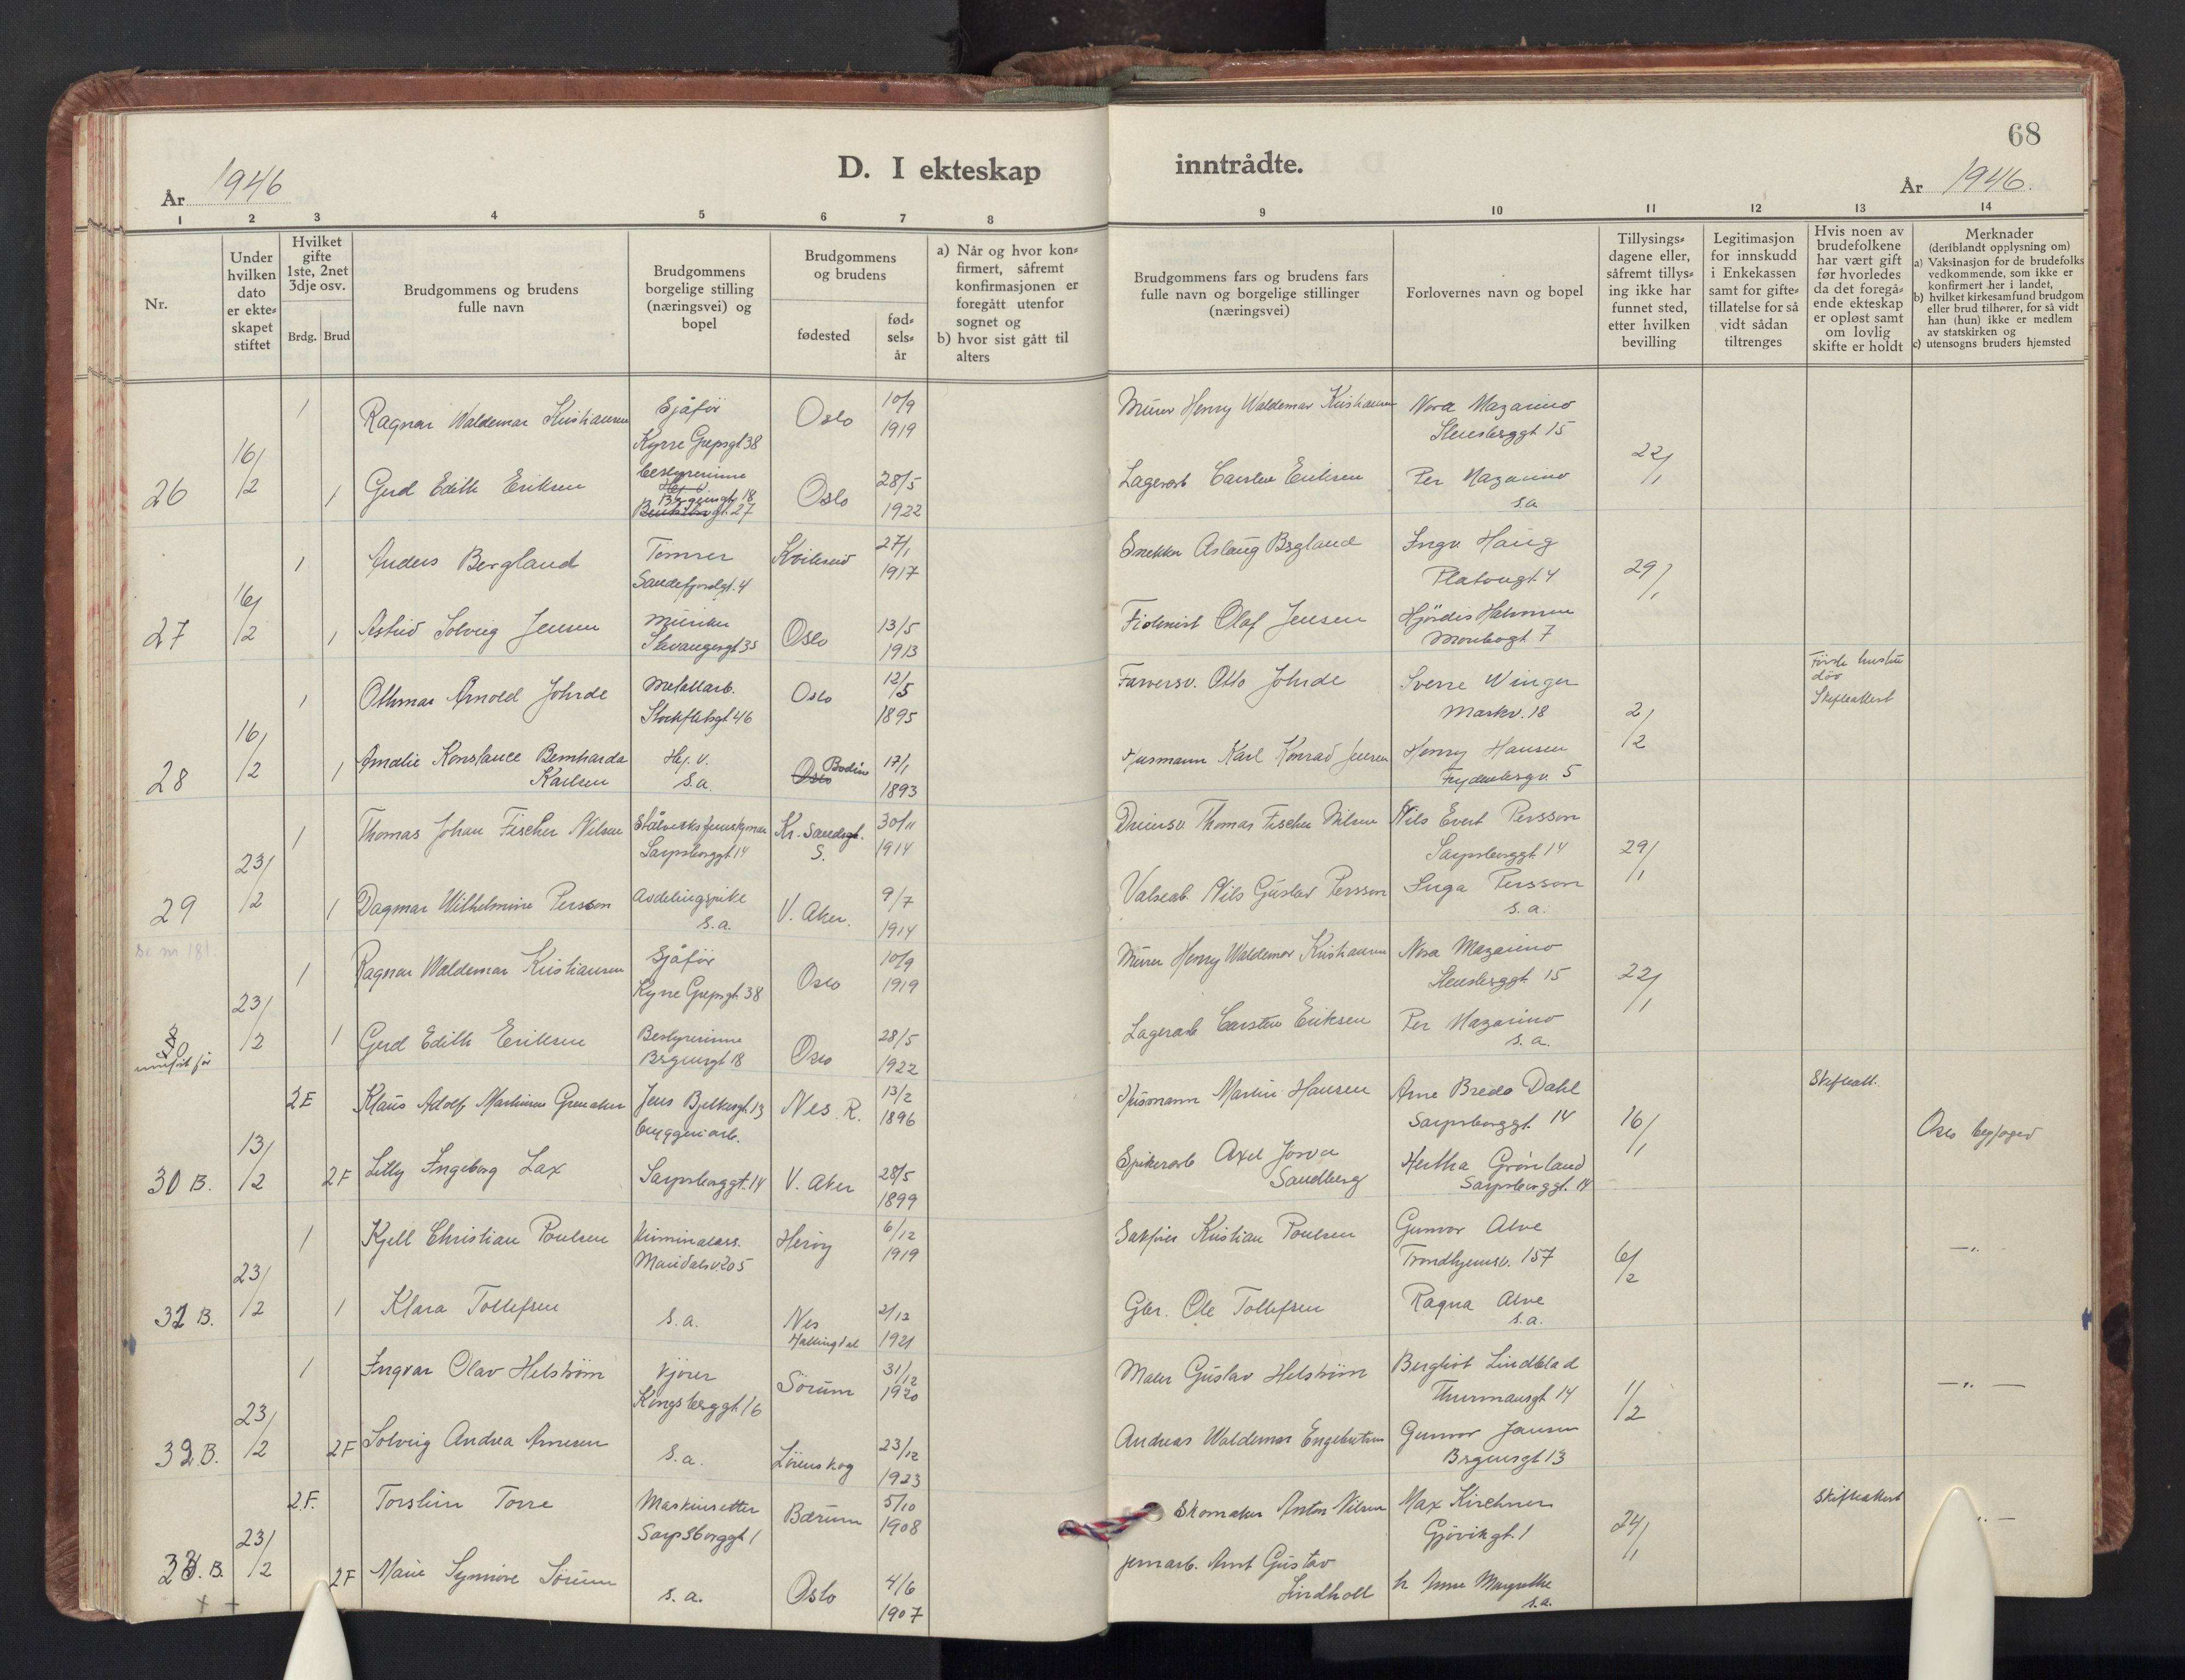 68
D. I ekteskap inntrådte.
År 1946
År 1946.
1 2 3 4 5 6 7 8 9 10 11 12 13 14
Nr.
Under hvilken dato er ekteskapet stiftet
Hvilket gifte 1ste, 2net 3dje osv.
Brdg. Brud
Brudgommens og brudens fulle navn
Brudgommens borgelige stilling (næringsvei) og bopel
Brudgommens og brudens
fødested
fødselsår
a) Når og hvor konfirmert, såfremt konfirmasjonen er foregått utenfor sognet og
b) hvor sist gått til alters
Brudgommens fars og brudens fars fulle navn og borgelige stillinger (næringsvei)
Forlovernes navn og bopel
Tillysingsdagene eller, såfremt tillysing ikke har funnet sted, etter hvilken bevilling
Legitimasjon for innskudd i Enkekassen samt for giftetillatelse for så vidt sådan tiltrenges
Hvis noen av brudefolkene har vært gift før hvorledes da det foregående ekteskap er opløst samt om lovlig skifte er holdt
Merknader
(deriblandt opplysning om)
a) Vaksinasjon for de brudefolks vedkommende, som ikke er konfirmert her i landet,
b) hvilket kirkesamfund brudgom eller brud tilhører, for så vidt han (hun) ikke er medlem av statskirken og
c) utensogns bruders hjemsted
1 Ragnar Waldemar Kristiansen Sjåfør Oslo 10/9 1919 Murer Henry Waldemar Kristiansen Nora Mazarino
Kyrre Grepsgt 38 Stensberggt 15
26 16/2 1 Gerd Edith Eriksen bestyrerinne Oslo 28/5 1922 Lagerarb Carsten Eriksen Per Mazarino 22/1
Hej. v.
Bergensgt. 18 s.a.
gt. 27
1 Anders Bergland Tømrer Kviteseid 27/1 1917 Snekker Aslaug Bergland Ingv. Haug
Sandefjordgt. 4 Platougt 4 29/1
27 16/2 1 Astrid Solveig Jensen Oslo 13/5 1913 Olaf Jensen Hjördis Halvorsen
Stavangergt 35 7
1 Othmar Arnold Johrde Metallarb. Oslo 12/5 1895 Farversv. Otto Johrde Sverre Winger Første hustru død
Stockfletsgt 46 Markv. 18 2/2 Skifteattest
28 16/2 1 Amalie Konstance Bernharda Karlsen Hej. v. Oslo Bodin 17/1 1893 Husmann Karl Konrad Jensen Henry Hansen
s.a. Frydenbergv. 5
1 Thomas Johan Fischer Nilsen Kr. sands S. 30/11 1914 Thomas Fischer Nilsen Nils Evert Persson
Sarpsborggt 14 Sarpsborggt 14 29/1
29 23/2 1 Dagmar Wilhelmine Persson Avdelingspike V. Aker. 9/7 1914 Valsearb. Nils Gustav Persson Inga Persson
s.a. s.a.
Se nr 181.
1 Ragnar Waldemar Kristiansen Sjåfør Oslo 10/9 1919 Murer Henry Waldemar Kristiansen Nora Mazarino
Kyrre Grepsgt. 38 Stensberggt 15 22/1
30 23/2 1 Gerd Edith Eriksen Bestyrerinne Oslo 28/5 1922 Lagerarb Carsten Eriksen Per Mazarino
innført før Bergensgt 18 s.a.
2E Klaus Adolf Martinius Grenaker Jens Bjelkesgt. 13 Nes. R. 13/2 1896 Husmann Martin Hansen Arne Bredo Dahl Skifteatt.
bryggeriarb. Sarpsborggt. 14 16/1 Oslo byfoged
30 B. 13/2 2F Lilly Ingeborg Lax Sarpsborggt. 14 V. Aker 28/5 1899 Spikerarb Axel Sandberg Hertha Grönland
Sarpsborggt. 14
1 Kjell Christian Poulsen Kriminalass. Herøy 6/12 1919 Sakfører Kristian Poulsen Gunvor Alve —„—
Maridalsv. 205 Trondhjemsv. 157 6/2
31 B. 23/2 1 Klara Tollefsen s.a. Nes Hallingdal 2/12 1921 Gbr. Ole Tollefsen Ragna Alve
s.a.
1 Ingvar Olav Helstrøm kjører Sørum 31/12 1920 Maler Gustav Helstrøm Bergliot Lindblad —„—
Kongsberggt. 16 Thurmansgt 14 1/2
32 B. 23/2 2F Solveig Andrea Arnesen s.a. Lørenskog 23/12 1923 Andreas Waldemar Engebretsen Gunvor Jansen
Bergensgt 13
2F. Torstein Torre Maskinsetter Bærum 5/10 1908 Skomaker Anton Nilsen Max Kirchner Skifteattest „—
Sarpsborggt 1 Gjøvikgt. 1 24/1
33. B. 23/2 2F Marie Synnøve Sørum s.a. Oslo 4/6 1907 jernarb. Arnt Gustav Lindholt h Anne Margrethe
s.a.
+ +